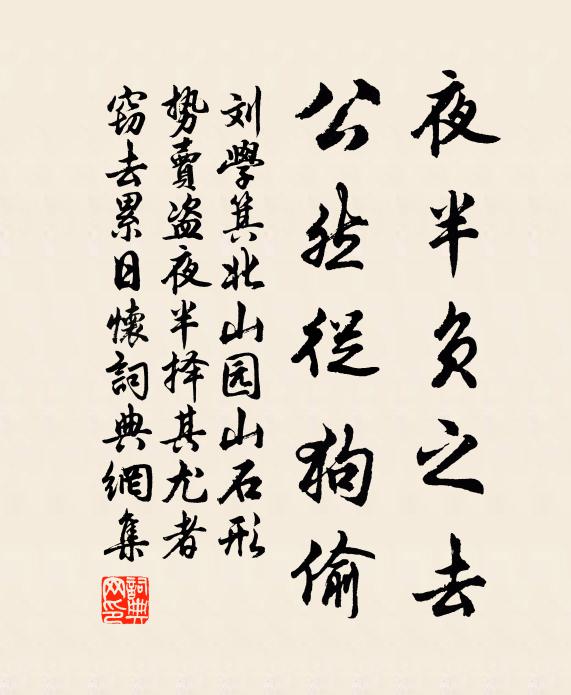 夜半负之去
公然従狗偷
刘學箕北山园山石形
势賣盗夜半择其尤者
窃去累日懷詞典網集
詞典网印